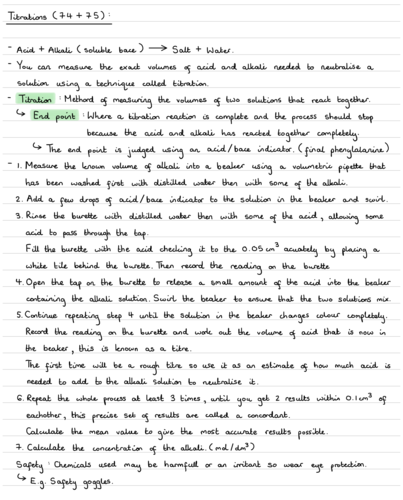 Titrations (74 + 75):
- Acid + Alkali (soluble base) → Salt + Water.
- You can measure the exact volumes of acid and alkali needed to neutralise a
solution using a technique called titration.
- Titration: Method of measuring the volumes of two solutions that react together.
↳ End point: Where a titration reaction is complete and the process should stop
because the acid and alkali has reacted together completely.
↳ The end point is judged using an acid/base indicator. (final phenylalanine)
- 1. Measure the known volume of alkali into a beaker using a volumetric pipette that
has been washed first with distilled water then with some of the alkali.
2. Add a few drops of acid/base indicator to the solution in the beaker and swirl.
3. Rinse the burette with distilled water then with some of the acid, allowing some
acid to pass through the tap.
Fill the burette with the acid checking it to the 0.05 cm³ acuately by placing a
white tile behind the burette. Then record the reading on the burette
4. Open the tap on the burette to release a small amount of the acid into the beaker
containing the alkali solution. Swirl the beaker to ensure that the two solutions mix.
5. Continue repeating step 4 until the solution in the beaker changes colour completely.
Record the reading on the burette and work out the volume of acid that is now in
the beaker, this is known as a titre.
The first time will be a rough titre so use it as an estimate of how much acid is
needed to add to the alkali solution to neutralise it.
6. Repeat the whole process at least 3 times, until you get 2 results within 0.1cm³ of
eachother, this precise set of results are called a concordant.
Calculate the mean value to give the most accurate results possible.
7. Calculate the concentration of the alkali. (mol/dm³)
Safety: Chemicals used may be harmfull or an irritant so wear eye protection.
↳ E.g. Safety goggles.